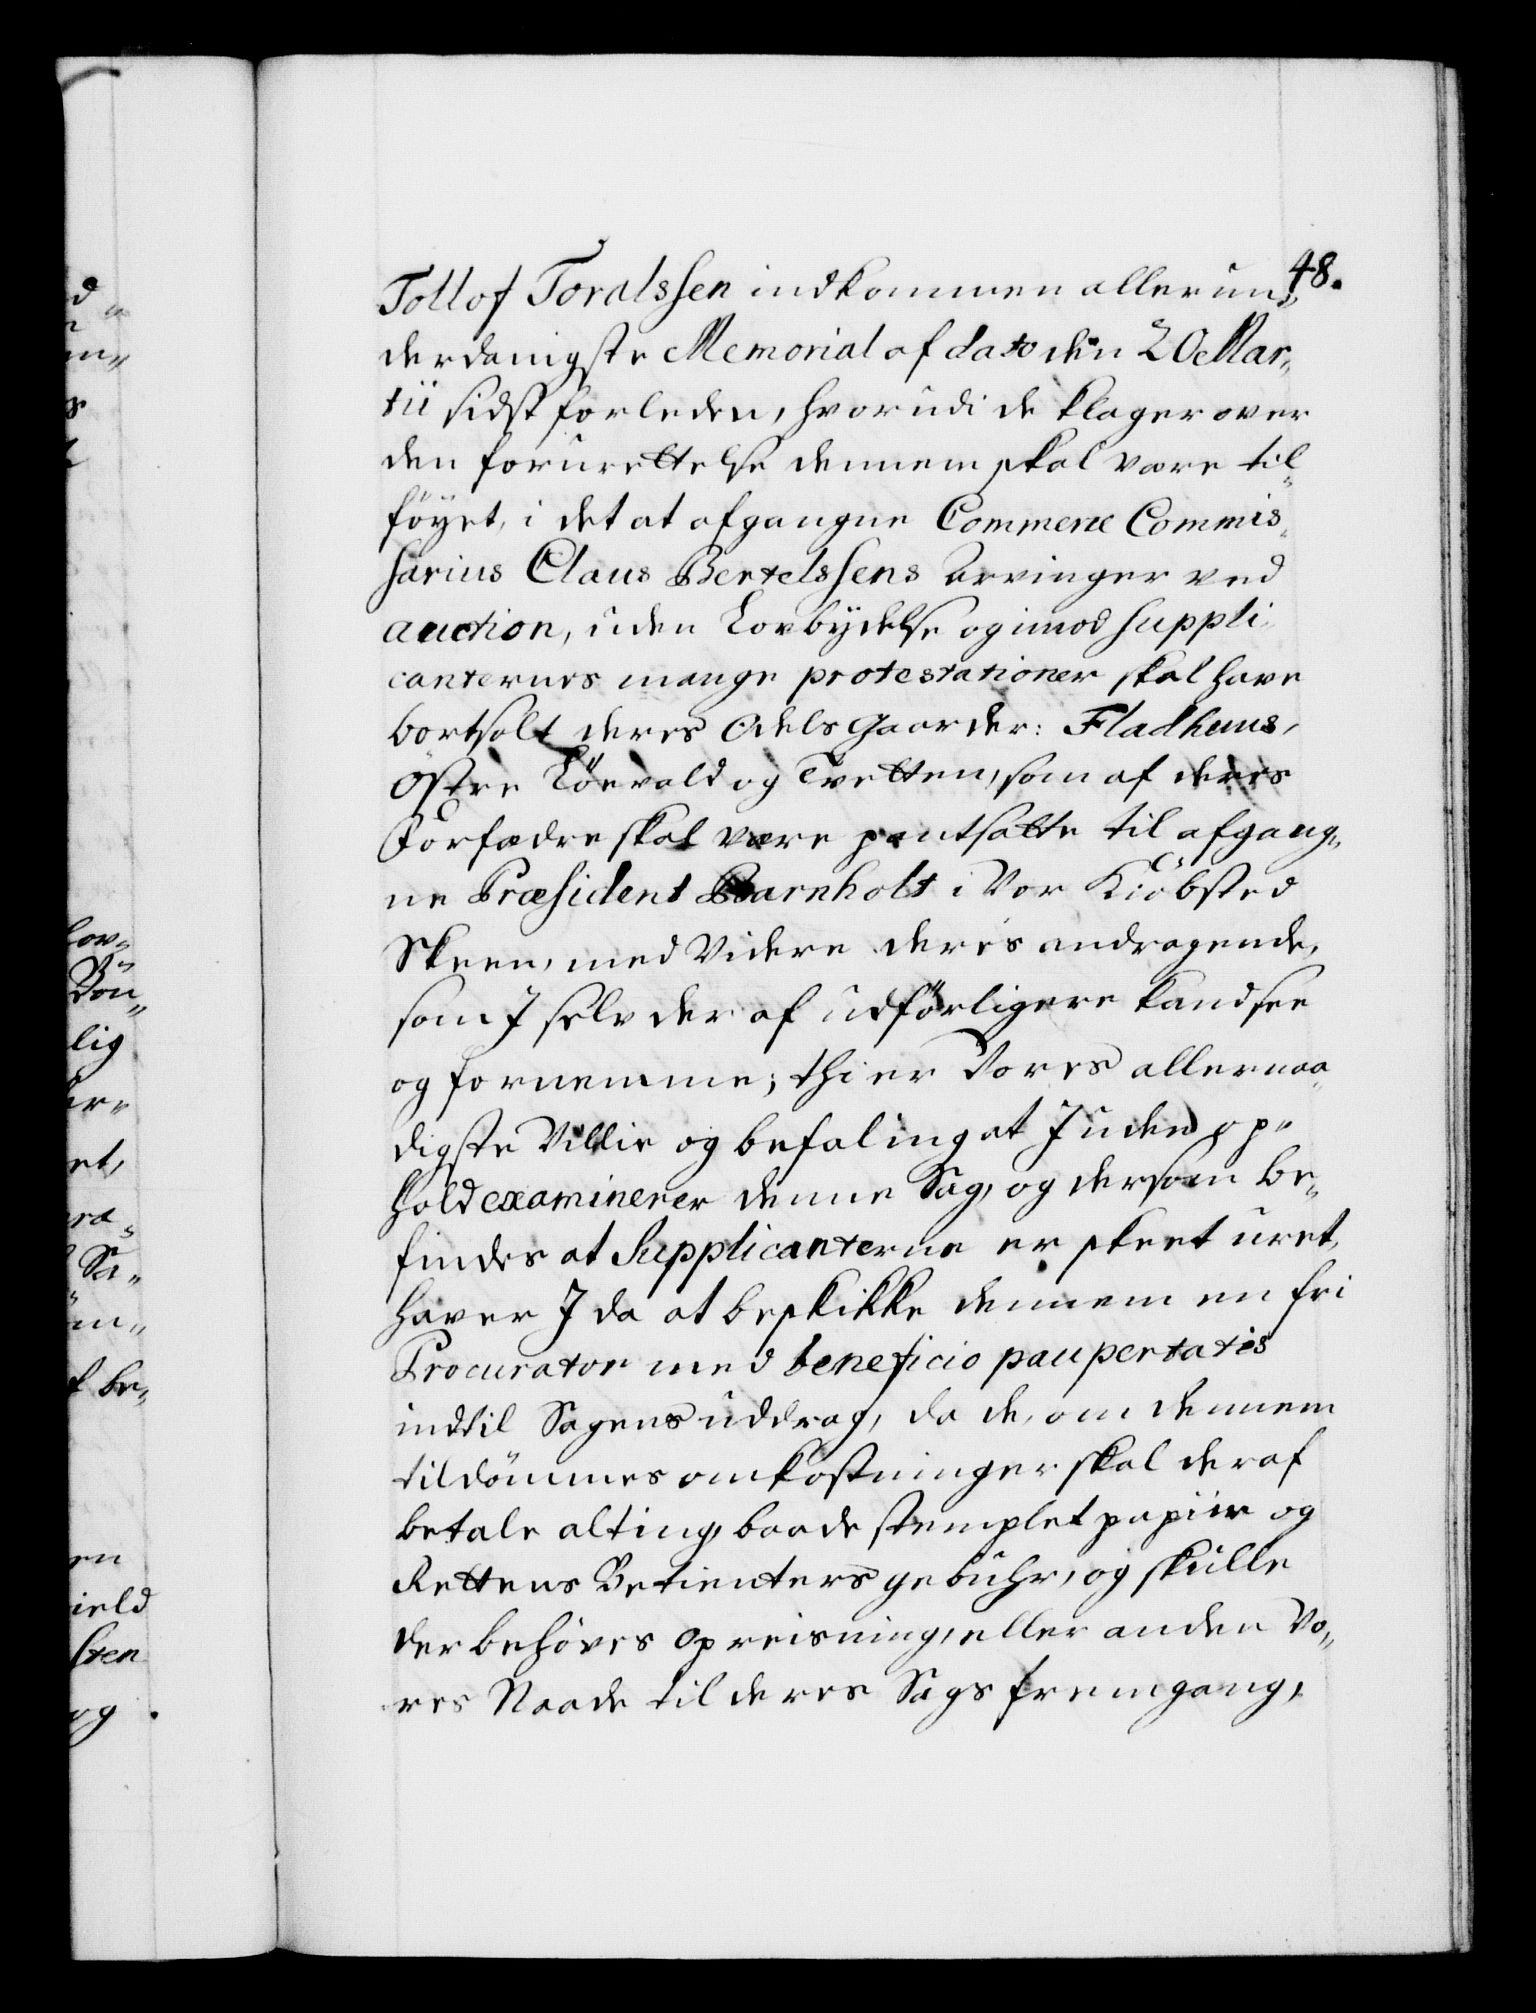 48.
Tollof Toralssen indkommen allerun„
derdanigste Memorial af dato den 20 Mar„
tii sidst forleden, hvorudi de klager over
den forurettelse dennem skal være til„
föyet, i det at afgangne Commerce Commis„
sarius Claus Bertelssens Arvinger ved
auction, uden Lovbydelse og imod suppli„
canternes mange protestationer skal have
bortsolt deres Odels Gaarder: Fladhuus,
Östre Töevald og Tvetten, som af deres
Forfædre skal være pantsatte til afgang„
ne Præsident Barnholt i Vor Kiöbsted
Skeen, med Videre deris andragende,
som I selv der af udförligere kand see
og fornemme; thi er Vores allernaa„
digste Villie og befaling at I uden op„
hold examinerer denne Sag, og dersom be„
findes at Supplicanterne er skeet uret,
haver I da at beskikke dennem en fri
Procurator med beneficio paupertatis
indtil Sagens uddrag, da de, om dennem
tildömmes omkostninger skal deraf
betale alting, baade stemplet papiir og
Rettens Betienters gebuhr, og skulle
der behöves Opreisning, eller anden Vo„
res Naade til deres Sags fremgang,